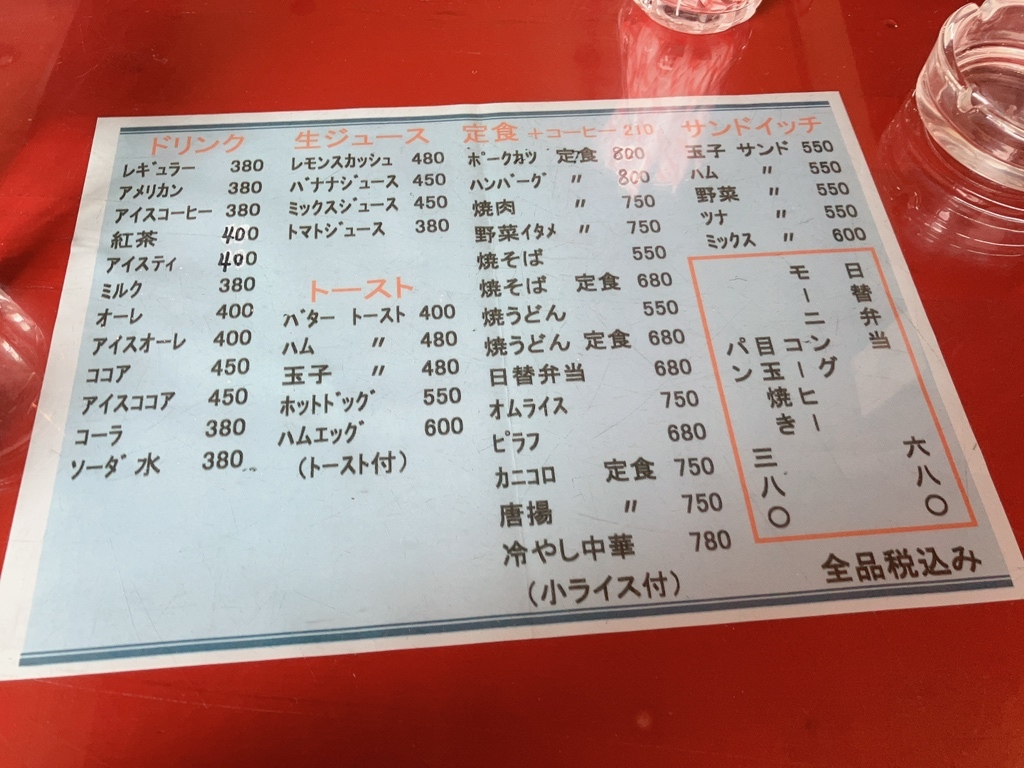 ドリンク
レギュラー 380
アメリカン 380
アイスコーヒー 380
紅茶 400
アイスティ 400
ミルク 380
オーレ 400
アイスオーレ 400
ココア 450
アイスココア 450
コーラ 380
ソーダ水 380
生ジュース
レモンスカッシュ 480
バナナジュース 450
ミックスジュース 450
トマトジュース 380
トースト
バター トースト 400
ハム 〃 480
玉子 〃 480
ホットドッグ 550
ハムエッグ 600
(トースト付)
定食 +コーヒー 210
ポークカツ 定食 800
ハンバーグ 〃 800
焼肉 〃 750
野菜イタメ 〃 750
焼そば 550
焼そば 定食 680
焼うどん 550
焼うどん 定食 680
日替弁当 680
オムライス 750
ピラフ 680
カニコロ 定食 750
唐揚 〃 750
冷やし中華 780
(小ライス付)
サンドイッチ
玉子 サンド 550
ハム 〃 550
野菜 〃 550
ツナ 〃 550
ミックス 〃 600
日替弁当 六八〇
モーニング
コーヒー
目玉焼き
パン 三八〇
全品税込み